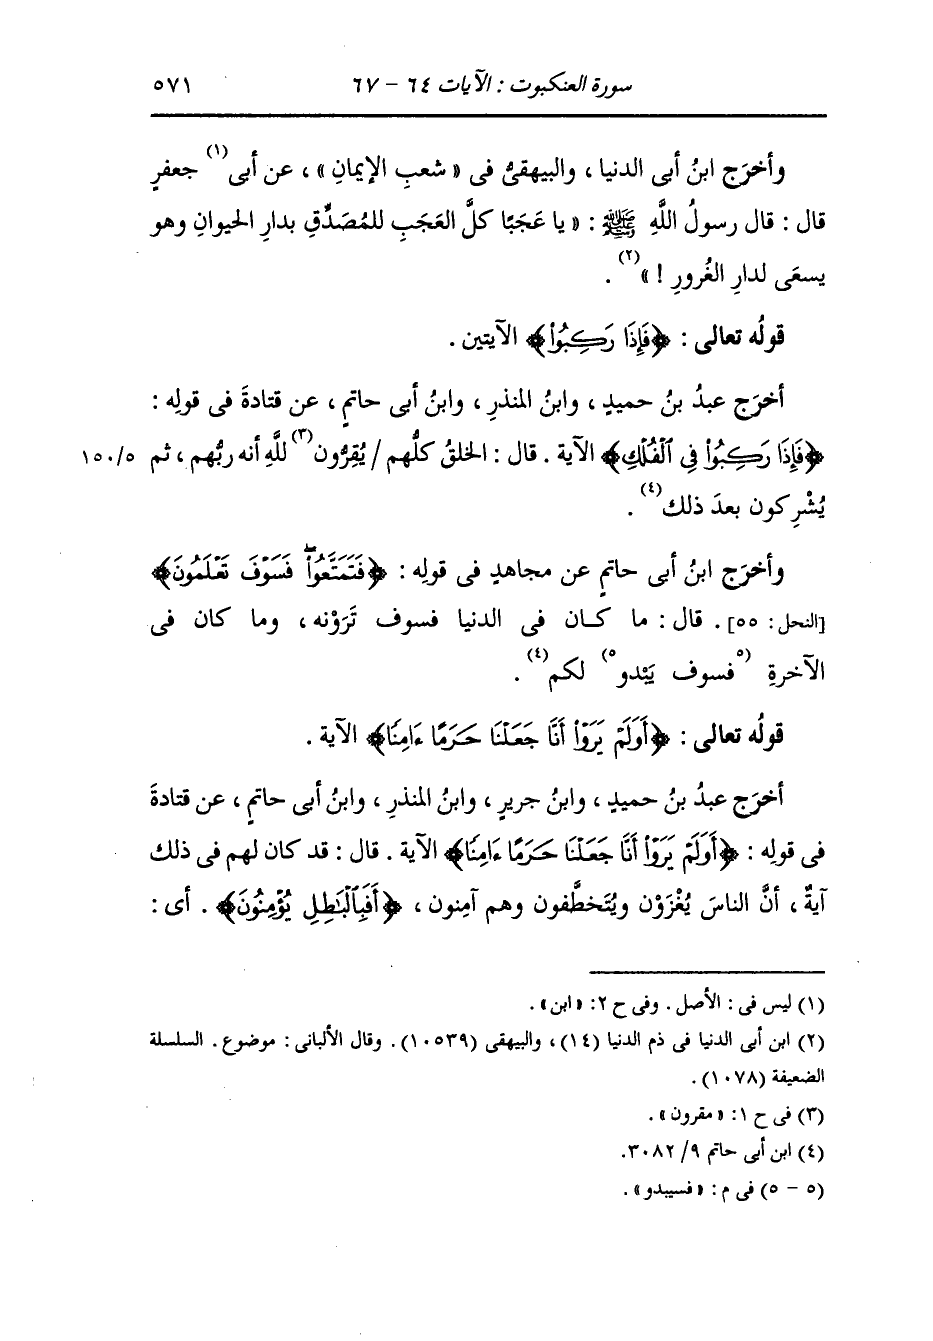 سورة العنكبوت : الآيات ٦٤ - ٦٧ ٥٧١
وأخرَج ابنُ أبى الدنيا ، والبيهقىُّ فى « شعبِ الإيمانِ » ، عن أبى(١) جعفرٍ
قال : قال رسولُ اللَّهِ ﷺ : « يا عَجَبًا كلَّ العَجَبِ للمُصَدِّقِ بدارِ الحيوانِ وهو
يسعَى لدارِ الغُرورِ ! »(٢) .
قولُه تعالى : ﴿فَإِذَا رَكِبُوا۟﴾ الآيتين .
أخرَج عبدُ بنُ حميدٍ ، وابنُ المنذرِ ، وابنُ أبى حاتمٍ ، عن قتادةَ فى قولِه :
﴿فَإِذَا رَكِبُوا۟ فِى ٱلْفُلْكِ﴾ الآية . قال : الخلقُ كلُّهم / يُقِرُّون(٣) للَّهِ أنه ربُّهم ، ثم ١٥٠/٥
يُشْرِكون بعدَ ذلك(٤) .
وأخرَج ابنُ أبى حاتمٍ عن مجاهدٍ فى قولِه : ﴿فَتَمَتَّعُوا۟ۖ فَسَوْفَ تَعْلَمُونَ﴾
[النحل : ٥٥] . قال : ما كان فى الدنيا فسوف تَرَوْنه ، وما كان فى
الآخرةِ (٥فسوف يَبْدو٥) لكم(٤) .
قولُه تعالى : ﴿أَوَلَمْ يَرَوْا۟ أَنَّا جَعَلْنَا حَرَمًا ءَامِنًا﴾ الآية .
أخرَج عبدُ بنُ حميدٍ ، وابنُ جريرٍ ، وابنُ المنذرِ ، وابنُ أبى حاتمٍ ، عن قتادةَ
فى قولِه : ﴿أَوَلَمْ يَرَوْا۟ أَنَّا جَعَلْنَا حَرَمًا ءَامِنًا﴾ الآية . قال : قد كان لهم فى ذلك
آيةٌ ، أنَّ الناسَ يُغْزَوْن ويُتَخطَّفون وهم آمِنون ، ﴿أَفَبِٱلْبَٰطِلِ يُؤْمِنُونَ﴾ . أى :
(١) ليس فى : الأصل . وفى ح ٢: «ابن» .
(٢) ابن أبى الدنيا فى ذم الدنيا (١٤) ، والبيهقى (١٠٥٣٩) . وقال الألبانى : موضوع . السلسلة
الضعيفة (١٠٧٨) .
(٣) فى ح ١: «مقرون» .
(٤) ابن أبى حاتم ٩/ ٣٠٨٢.
(٥ - ٥) فى م : «فسيبدو» .